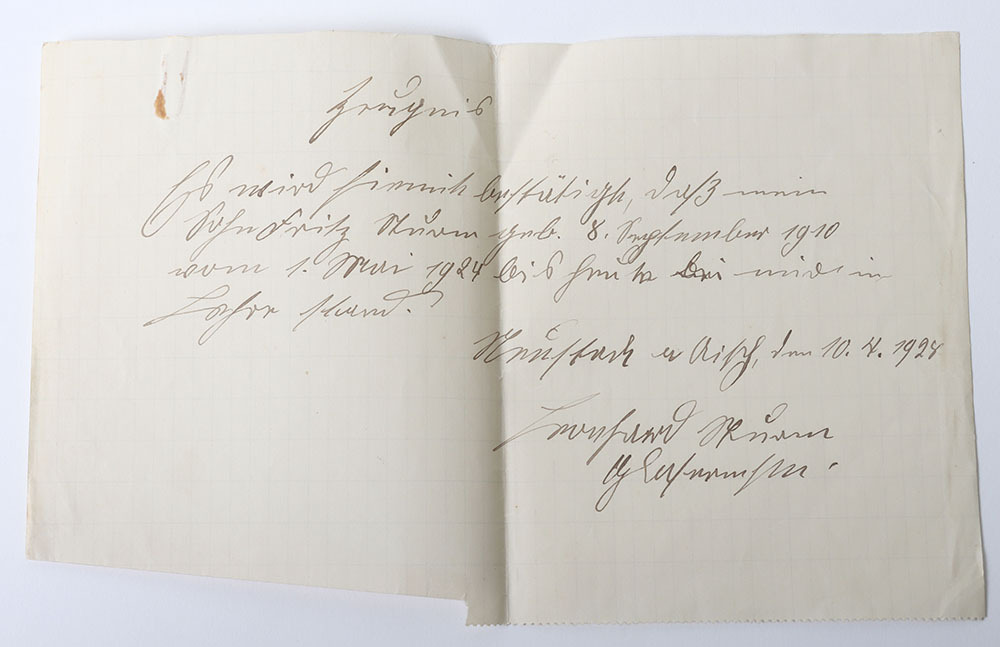 Zeugnis
Es wird hiemit bestätigt, daß mein
Sohn Fritz Sturm geb. 8. September 1910
vom 1. Mai 1924 bis heute bei mir in
Lehre stand.
Neustadt a Aisch, den 10. 4. 1928
Leonhard Sturm
Glasermstr.